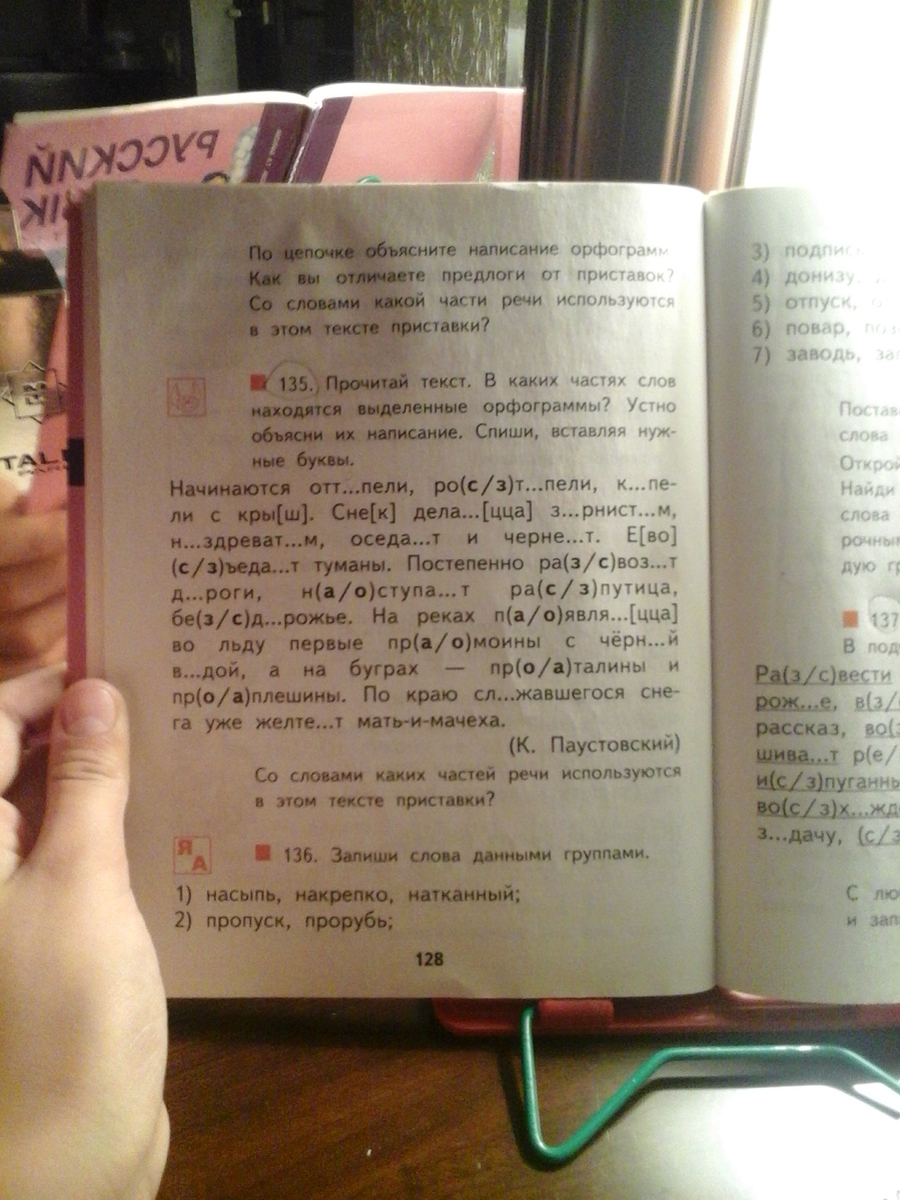 РУССКИЙ
По цепочке объясните написание орфограмм
Как вы отличаете предлоги от приставок?
Со словами какой части речи используются
в этом тексте приставки?
135. Прочитай текст. В каких частях слов
находятся выделенные орфограммы? Устно
объясни их написание. Спиши, вставляя нуж-
ные буквы.
Начинаются отт...пели, ро(с/з)т...пели, к...пе-
ли с кры[ш]. Сне[к] дела...[цца] з...рнист...м,
н...здреват...м, оседа...т и черне...т. Е[во]
(с/з)ъеда...т туманы. Постепенно ра(з/с)воз...т
д...роги, н(а/о)ступа...т ра(с/з)путица,
бе(з/с)д...рожье. На реках п(а/о)явля...[цца]
во льду первые пр(а/о)моины с чёрн...й
в...дой, а на буграх — пр(о/а)талины и
пр(о/а)плешины. По краю сл...жавшегося сне-
га уже желте...т мать-и-мачеха.
(К. Паустовский)
Со словами каких частей речи используются
в этом тексте приставки?
Я
А
136. Запиши слова данными группами.
1) насыпь, накрепко, натканный;
2) пропуск, прорубь;
128
3)
4) донизу,
5) отпуск,
6) повар,
7) заводь,
слова
Открой
Найди
слова
дую
137
В
Ра(з/с)вести
рож...е,
рассказ,
шива...т
и(с/з)пуганн
во(с/з)х...жд
з...дачу,
С
и